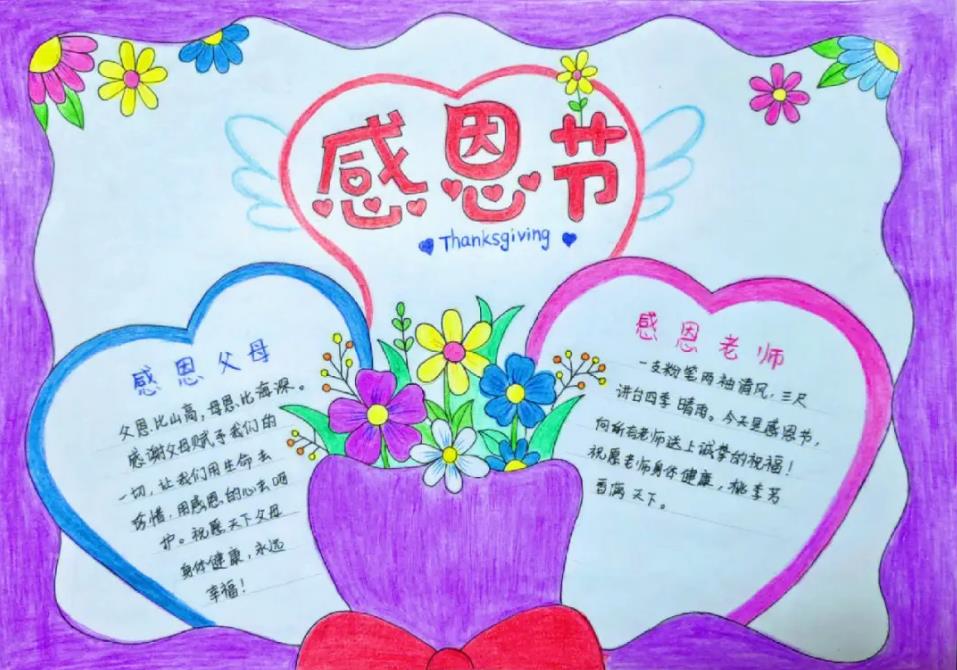 感恩节
Thanksgiving
感恩父母
父恩比山高，母恩比海深。
感谢父母赋予我们的
一切，让我们用生命去
珍惜，用感恩的心去呵
护。祝愿天下父母
身体健康，永远
幸福！
感恩老师
一支粉笔两袖清风，三尺
讲台四季晴雨。今天是感恩节，
向所有老师送上诚挚的祝福！
祝愿老师身体健康，桃李芳
香满天下。